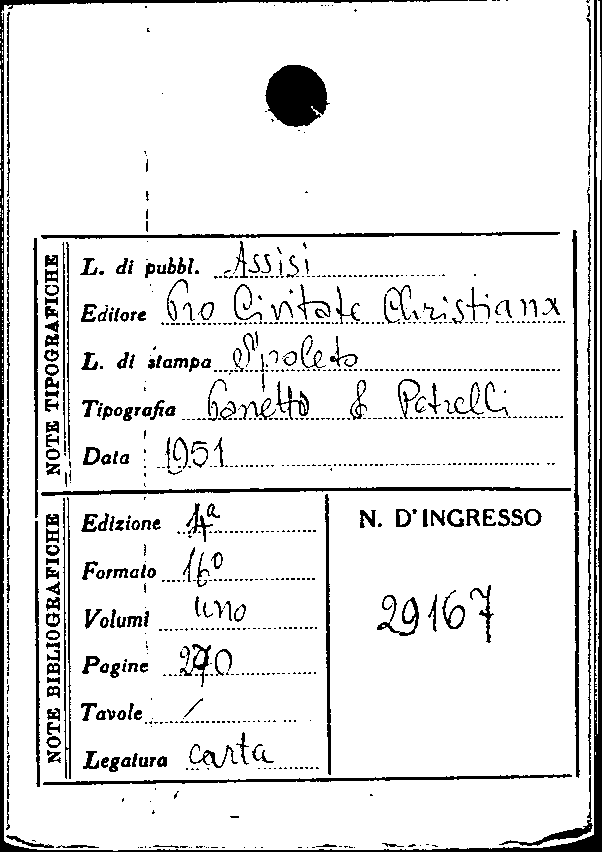 NOTE TIPOGRAFICHE
L. di pubbl. Assisi
Editore Pro Civitate Christiana
L. di stampa Spoleto
Tipografia Panetto & Petrelli
Data 1951
NOTE BIBLIOGRAFICHE
Edizione 4ª
Formato 16º
Volumi uno
Pagine 270
Tavole /
Legatura carta
N. D'INGRESSO
29167